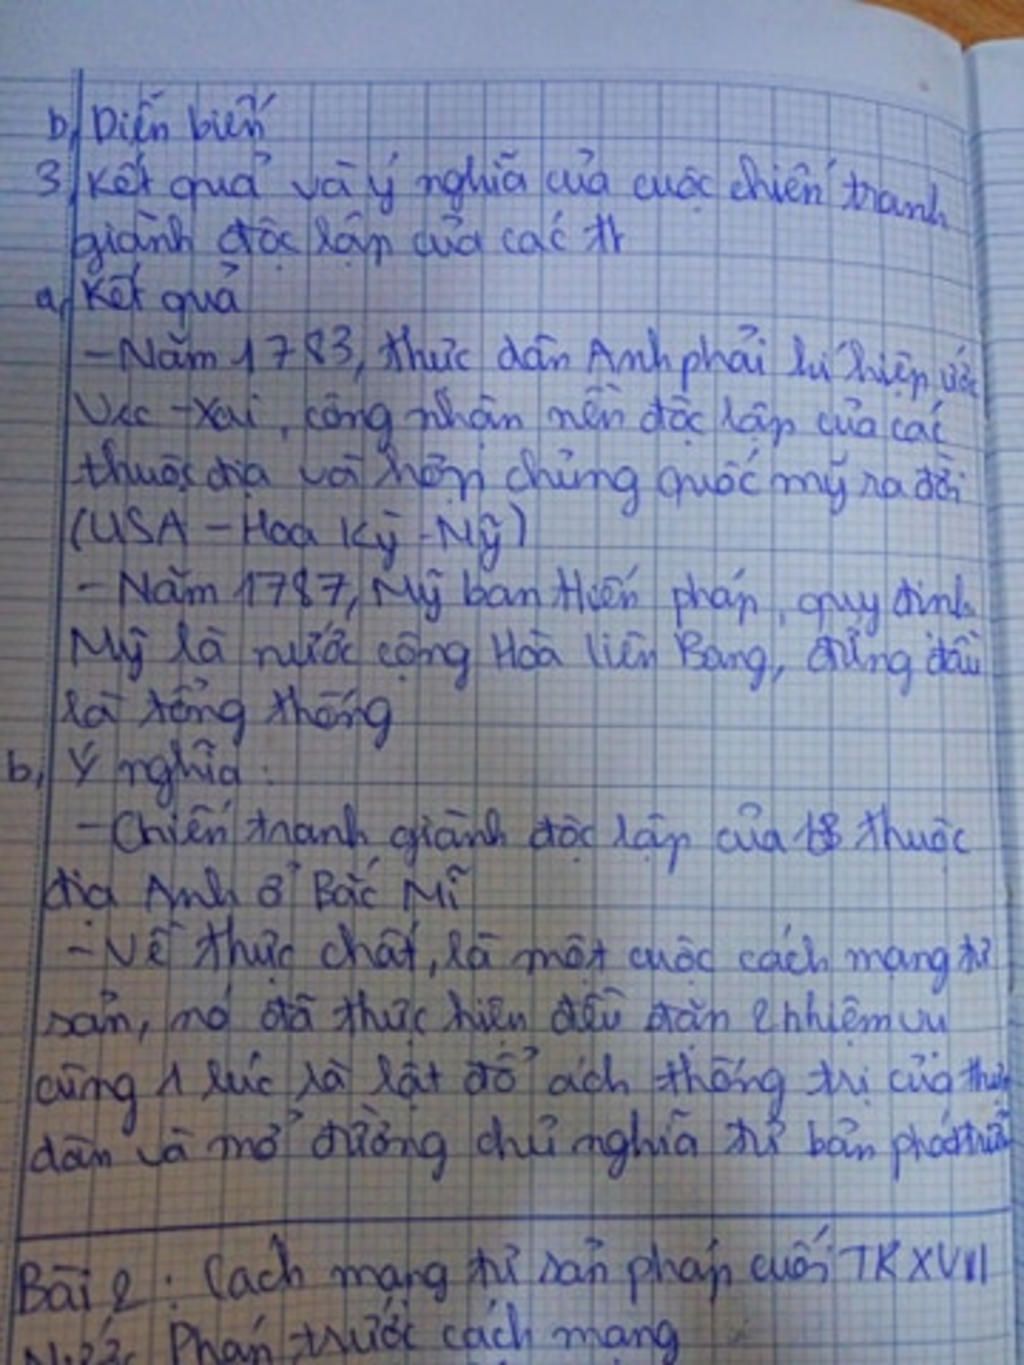 b, Diễn biến
3, Kết quả và ý nghĩa của cuộc chiến tranh
giành độc lập của các tr
a, Kết quả
- Năm 1783, thực dân Anh phải kí hiệp ước
Vec - Xai, công nhận nền độc lập của các
thuộc địa và hợp chủng quốc mỹ ra đời
(USA - Hoa Kỳ - Mỹ)
- Năm 1787, Mỹ ban Hiến pháp, quy định
Mỹ là nước cộng Hoà liên Bang, đứng đầu
là tổng thống
b, Ý nghĩa:
- Chiến tranh giành độc lập của 13 thuộc
địa Anh ở Bắc Mĩ
- Về thực chất, là một cuộc cách mạng tư
sản, nó đã thực hiện đều đặn 2 nhiệm vụ
cùng 1 lúc là lật đổ ách thống trị của thực
dân và mở đường chủ nghĩa tư bản phát triển
Bài 2: Cách mạng tư sản pháp cuối TK XVIII
Pháp trước cách mạng